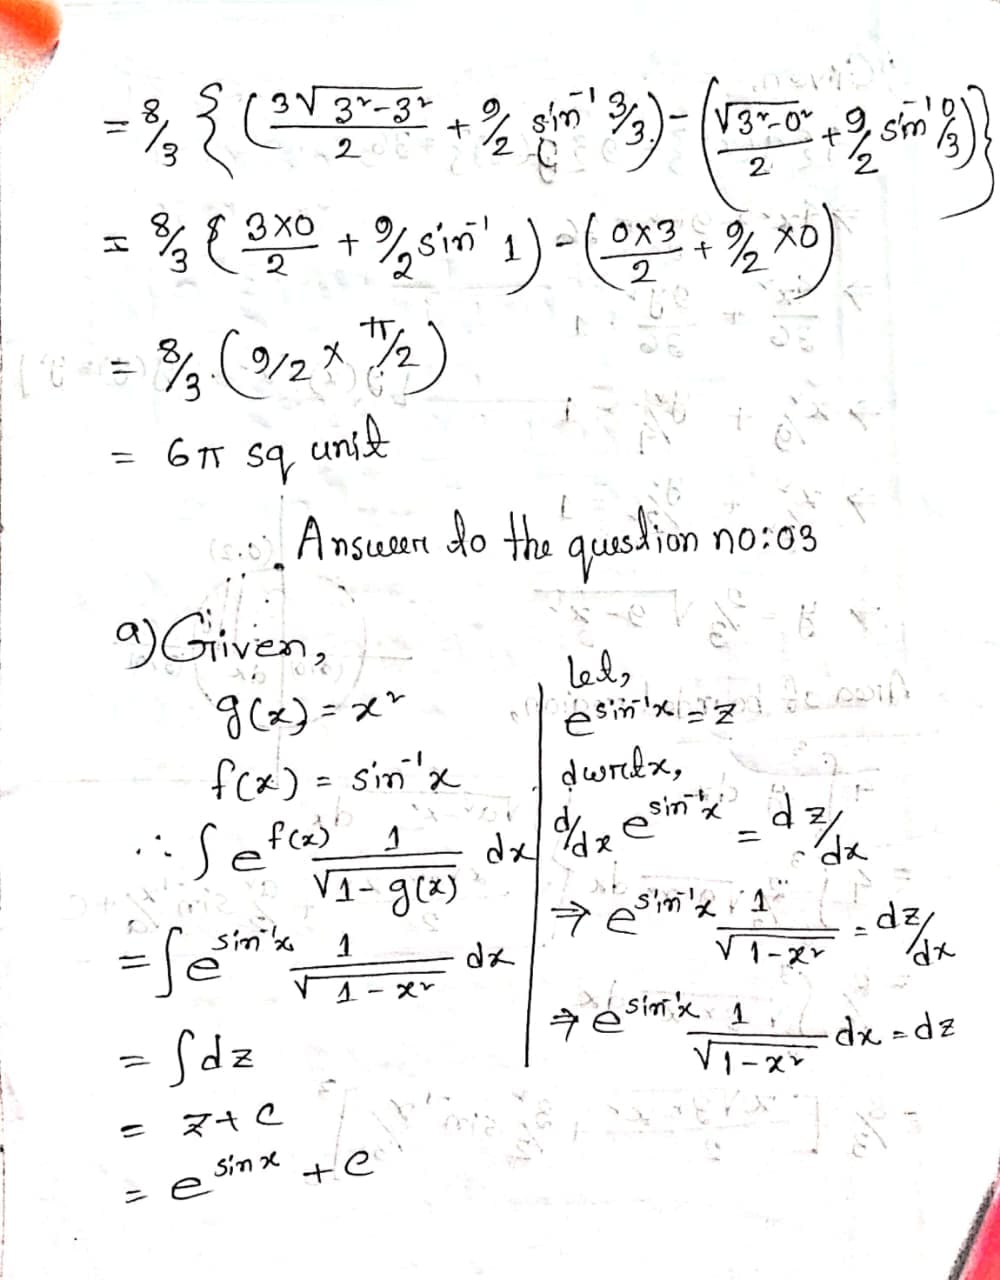 = 8/3 { ( 3√3²-3² / 2 + 9/2 sin⁻¹ 3/3 ) - ( √3²-0² / 2 + 9/2 sin⁻¹ 0/3 ) }
= 8/3 { ( 3×0 / 2 + 9/2 sin⁻¹ 1 ) - ( 0×3 / 2 + 9/2 ×0 )
= 8/3 . ( 9/2 × π/2 )
= 6π sq unit
Answer to the question no:03
a) Given,
g(x) = x²
f(x) = sin⁻¹x
∴ ∫ e^f(x) 1 / √1-g(x) dx
= ∫ e^sin⁻¹x 1 / √1-x² dx
= ∫ dz
= z + c
= e^sin x + c
let,
e^sin⁻¹x = z
dwrtx,
d/dx e^sin⁻¹x = dz/dx
⇒ e^sin⁻¹x . 1 / √1-x² = dz/dx
⇒ e^sin⁻¹x 1 / √1-x² dx = dz